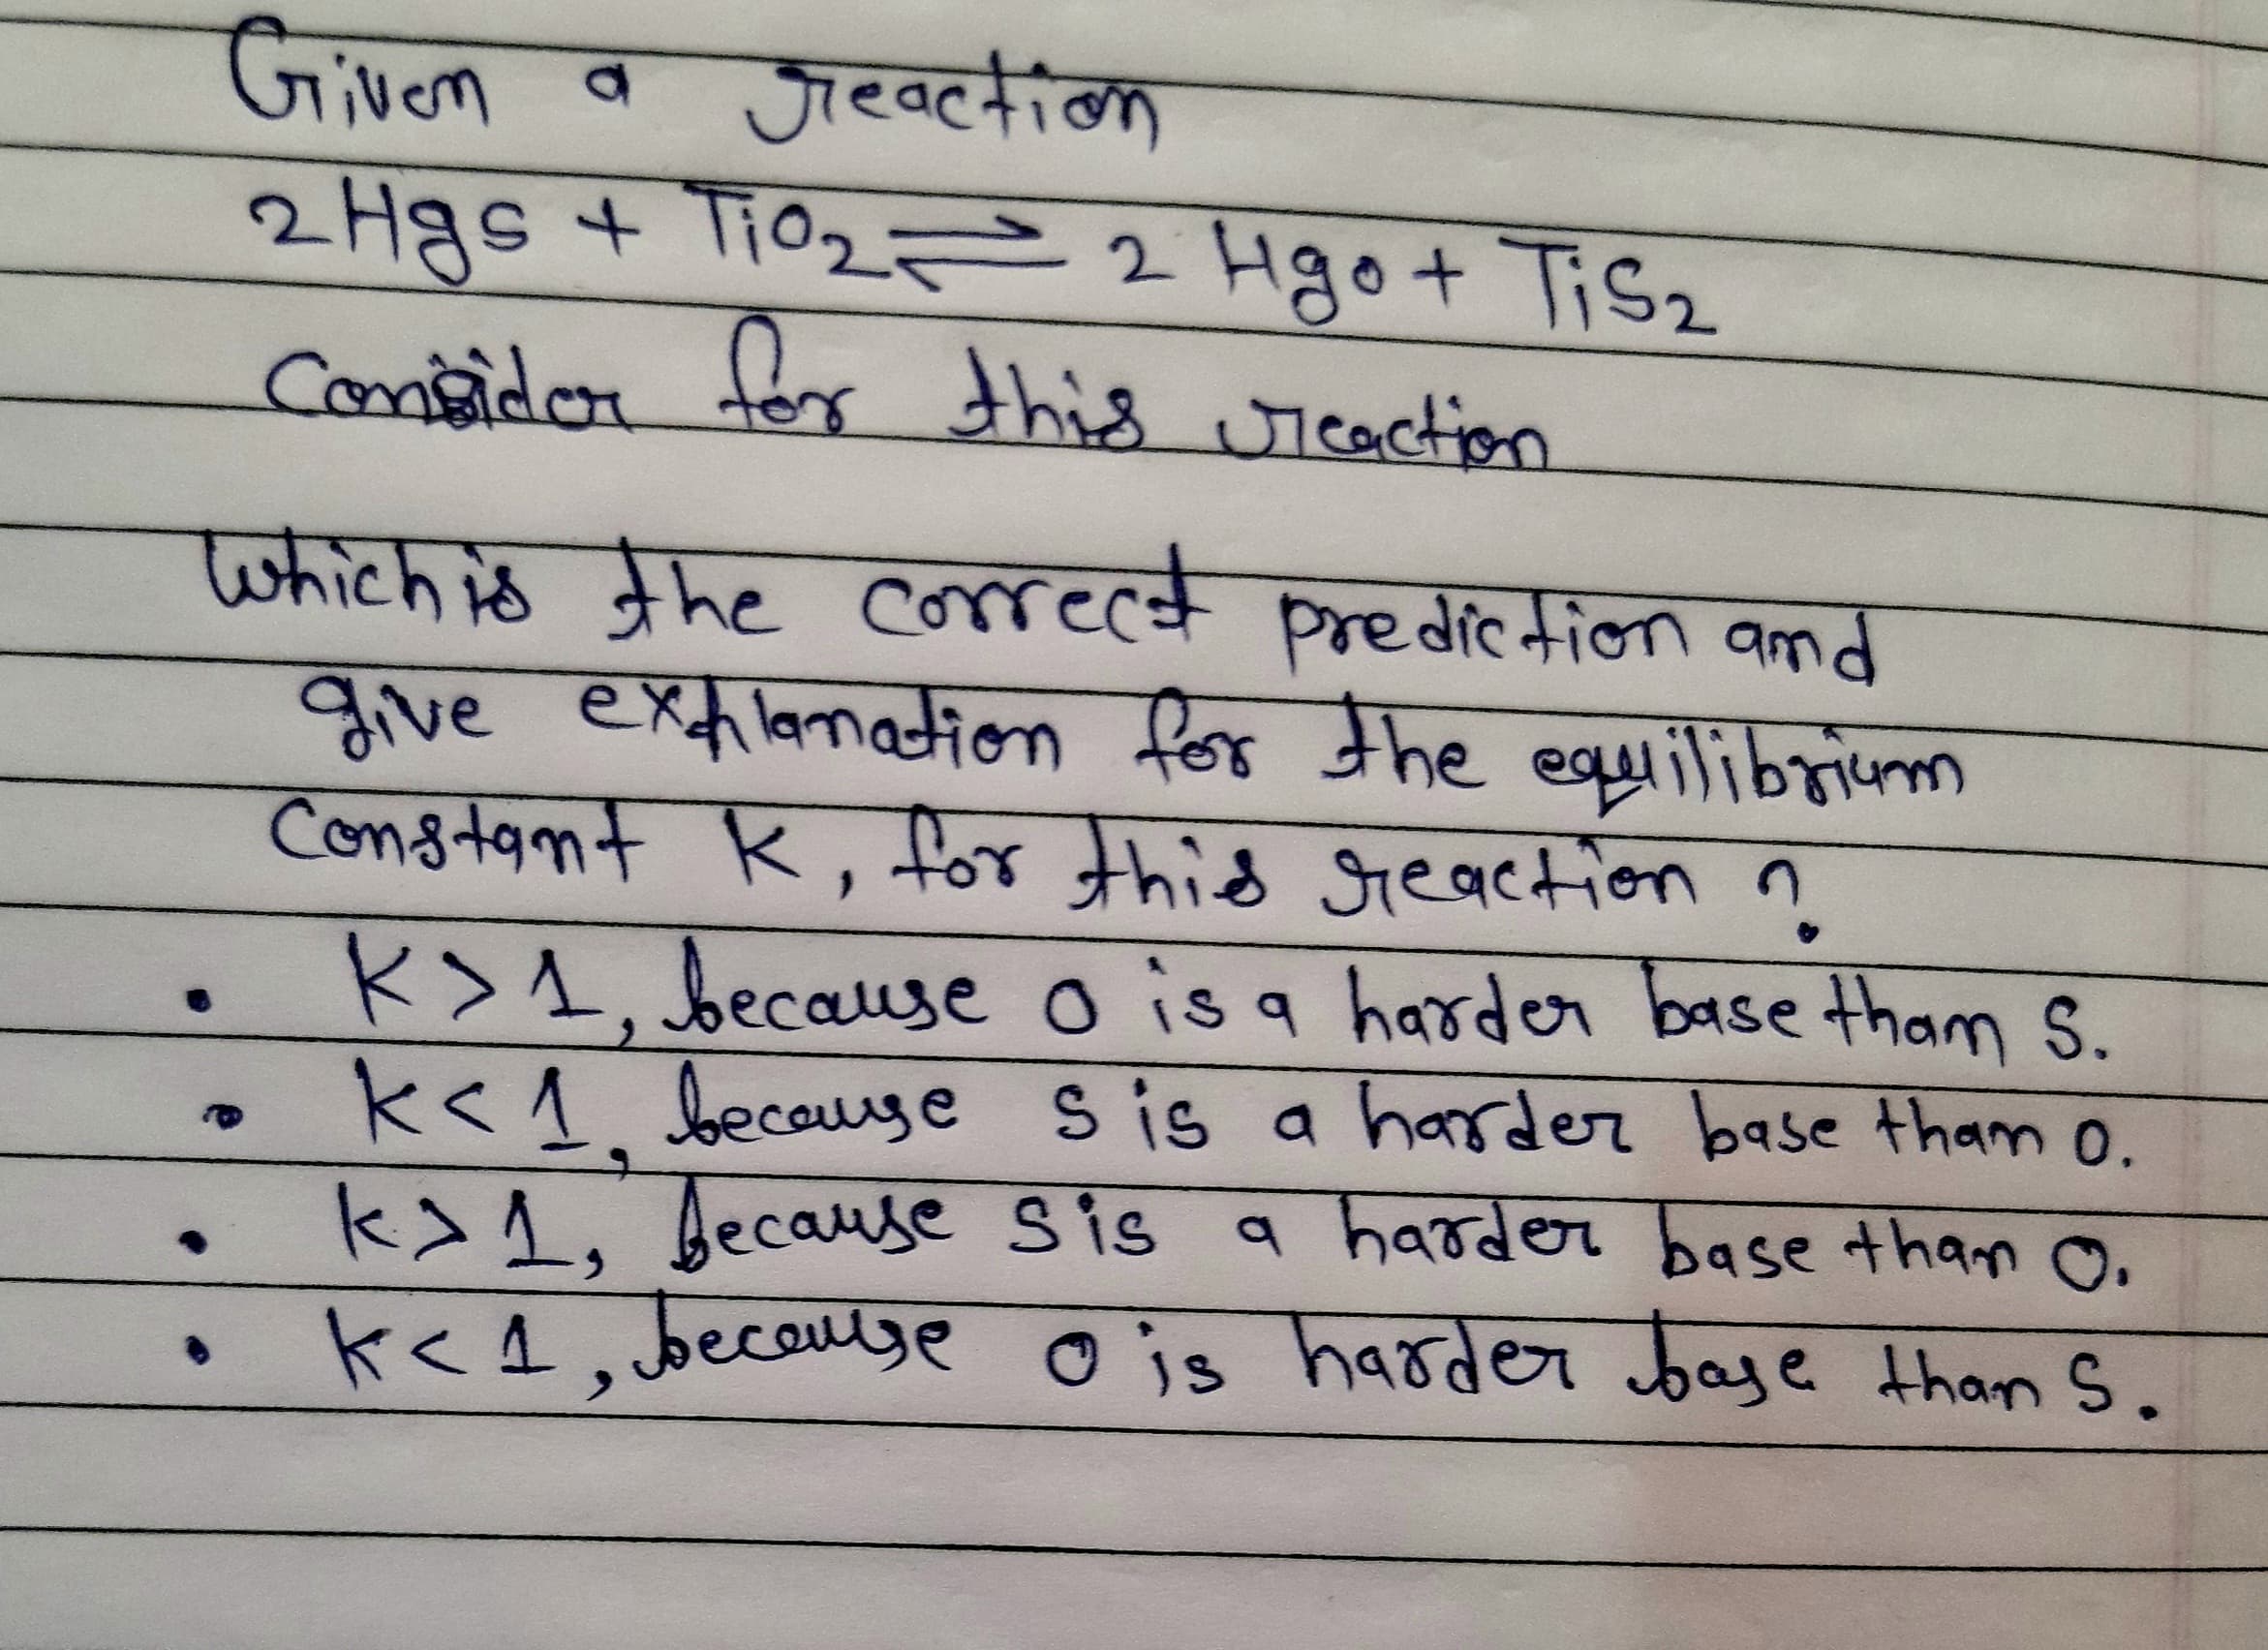 Given a reaction
2HgS + TiO2 ⇌ 2 HgO + TiS2
Consider for this reaction
Which is the correct prediction and
give explanation for the equilibrium
constant K, for this reaction ?
• K > 1, because O is a harder base than S.
• K < 1, because S is a harder base than O.
• K > 1, because S is a harder base than O.
• K < 1, because O is harder base than S.